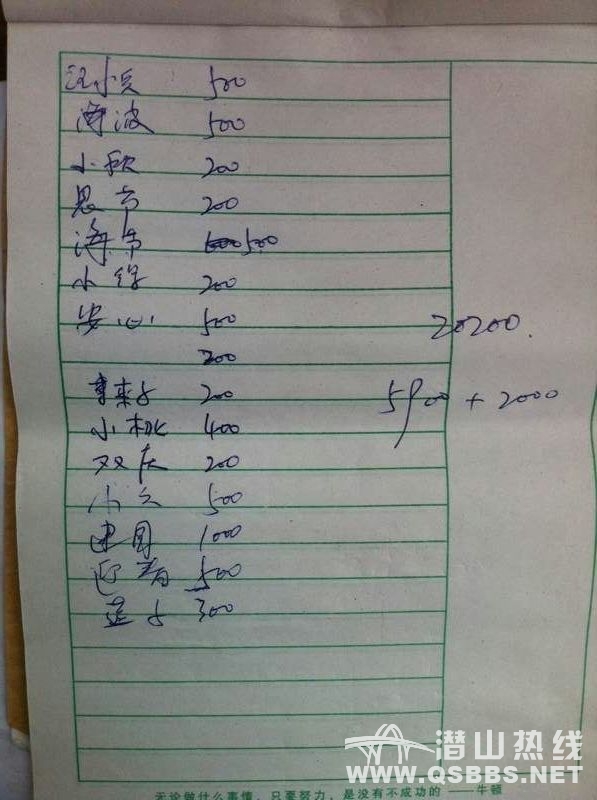 汪小兵 500
海波 500
小秋 200
思节 200
海节 500
小锋 200
安心 500
200
200
小桃 400
双庆 200
小久 500
建国 1000
迎春 500
300
20200.
5900 + 2000
无论做什么事情,只要努力,是没有不成功的 ——牛顿
潜山热线
WWW.QSBBS.NET